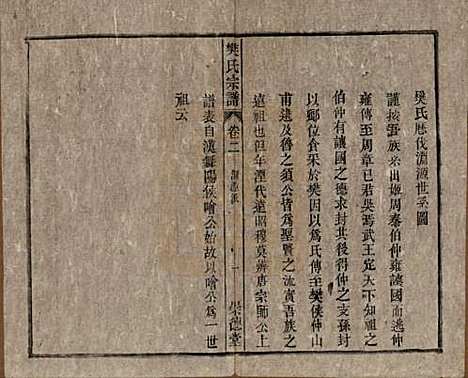 樊氏歷伐淵源世系圖
謹按吾族系出姬周泰伯仲雍讓國而逃仲
雍傳至周章已君吳焉武王定天下知祖之
伯仲有讓國之德求封其後得仲之支孫封
以鄉位食采於樊因以為氏傳至樊侯仲山
甫遠及魯之須公皆為聖賢之流寅吾族之
遠祖也但年湮代遠昭穆莫辨唐宗師公上
譜表自漢舞陽侯噲公始故以噲公為一世
祖云
樊氏宗譜
卷二
淵源派
一
榮德堂